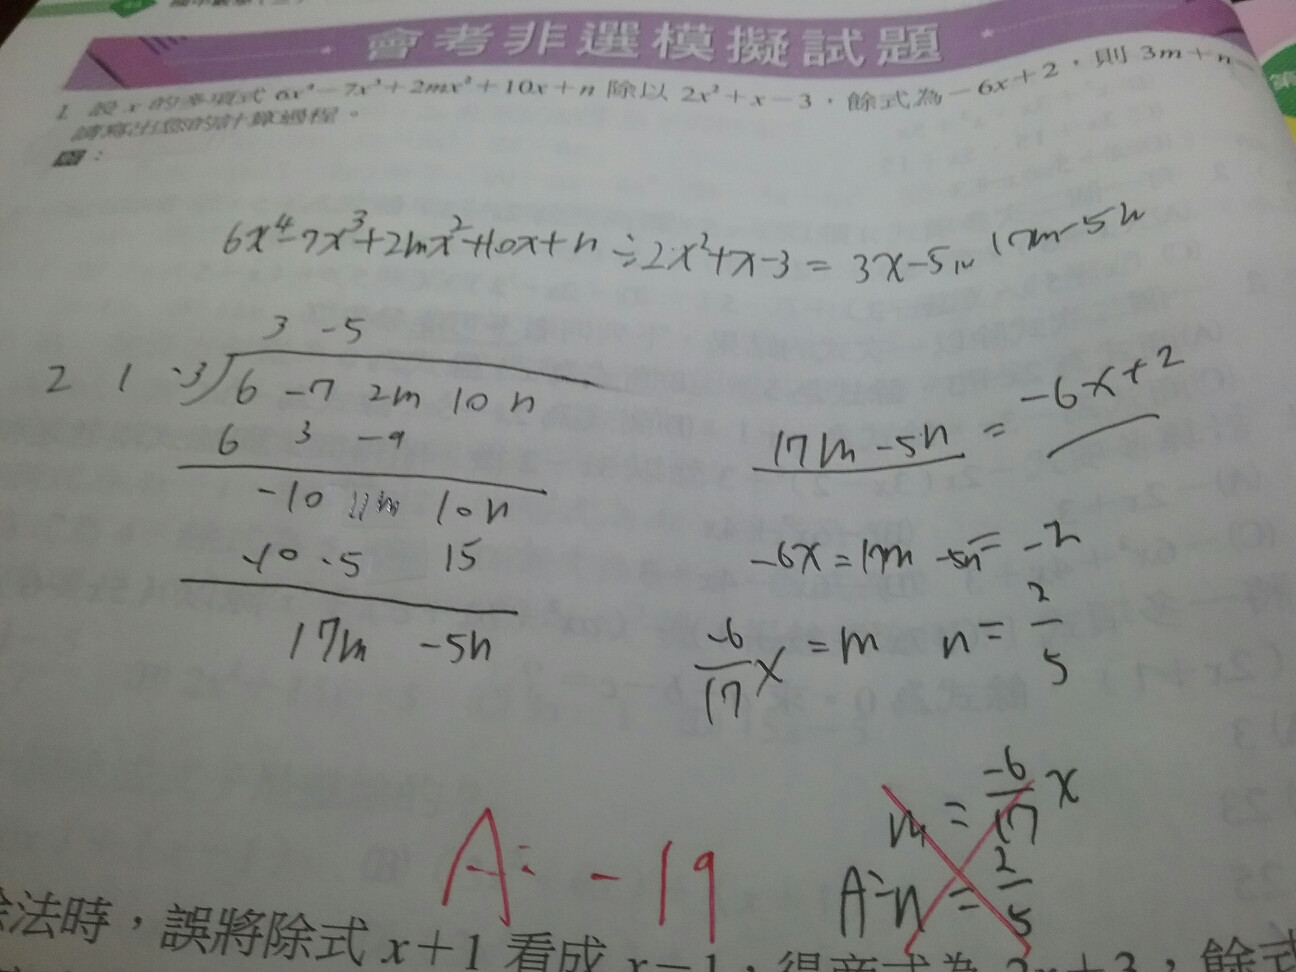 會考非選模擬試題
1. 設 x 的多項式 6x⁴－7x³＋2mx²＋10x＋n 除以 2x²＋x－3，餘式為－6x＋2，則 3m＋n
請寫出您的計算過程。
解：
6x⁴-7x³+2mx²+10x+n ÷ 2x²+x-3 = 3x-5 ... 17m-5n
3 -5
2 1 -3 ) 6 -7 2m 10 n
6 3 -9
-10 11m 10n
-10 -5 15
17m -5n
17m -5n = -6x+2
-6x = 17m -5n = -2
-6/17 x = m n = 2/5
m = -6/17 x
A: n = 2/5
A: -19
法時，誤將除式 x＋1 看成 x－1，得商式為 2x＋3，餘式